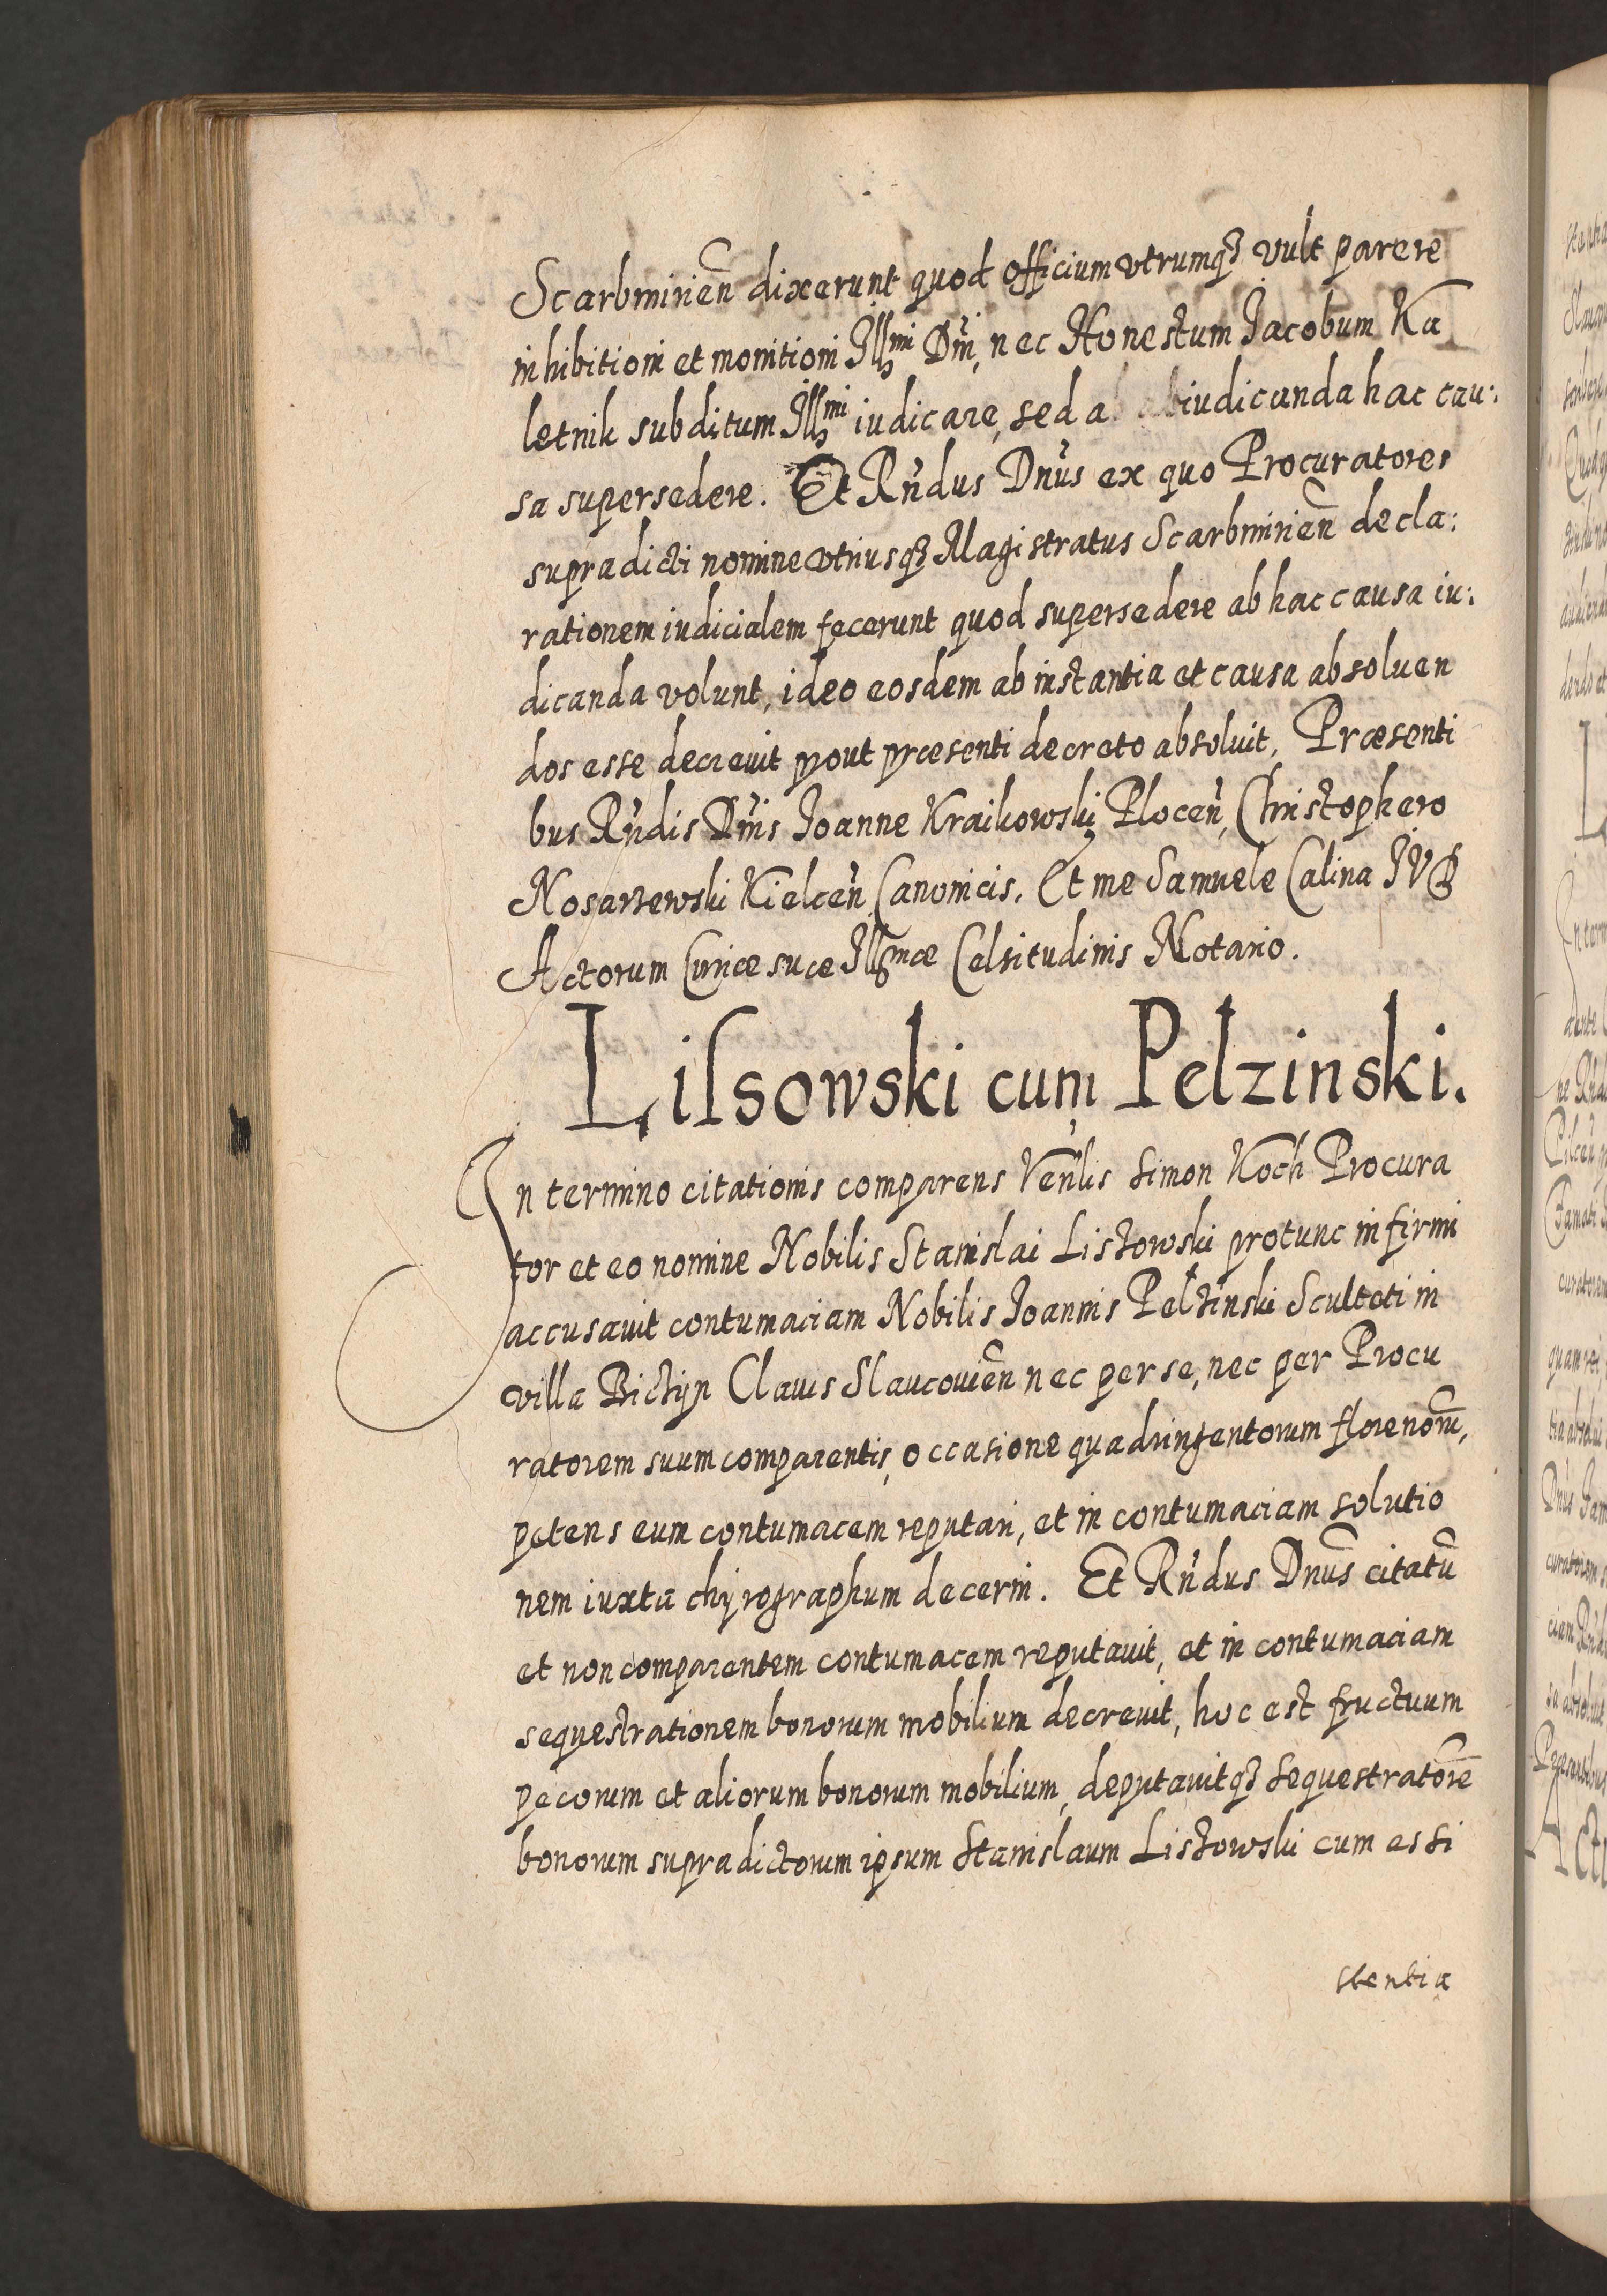 Scarbmirień dixerunt quod officium vtrumqꝫ vult parere
inhibitioni et monitioni Jllmi Dni, nec Honestum Jacobum Ka
letnik subditum Jllmi iudicare, sed a iudicanda hac cau:
sa supersedere. Et Rndus Dnus ex quo Procuratores
supradicti nomine vtriusqꝫ Magistratus Scarbmirień decla:
rationem iudicialem fecerunt quod supersedere ab hac causa iu:
dicanda volunt, ideo eosdem ab instantia et causa absoluen
dos esse decreuit prout præsenti decreto absoluit, Præsenti
bus Rndis Dnis Joanne Kraikowski Plocen, Christophero
Nosarzewski Kielcen Canonicis. Et me Samuele Calina JVD
Actorum Curiæ suæ Jllmæ Celsitudinis Notario.
Lissowski cum Pelzinski.
Jn termino citationis comparens Venlis Simon Koch Procura
tor et eo nomine Nobilis Stanislai Liszowski protunc infirmi
accusauit contumaciam Nobilis Joannis Pelzinski Sculteti in
villa Biczyn Clauis Slaucouień nec per se, nec per Procu
ratorem suum comparentis, occasione quadringentorum florenorū,
petens eum contumacem reputari, et in contumaciam solutio
nem iuxta chyrographum decerni. Et Rndus Dnus citatū
et non comparentem contumacem reputauit, et in contumaciam
sequestrationem bonorum mobilium decreuit, hoc est fructuum
pecorum et aliorum bonorum mobilium, deputauitqꝫ sequestratorē
bonorum supradictorum ipsum Stanislaum Liszowski cum assi
stentia